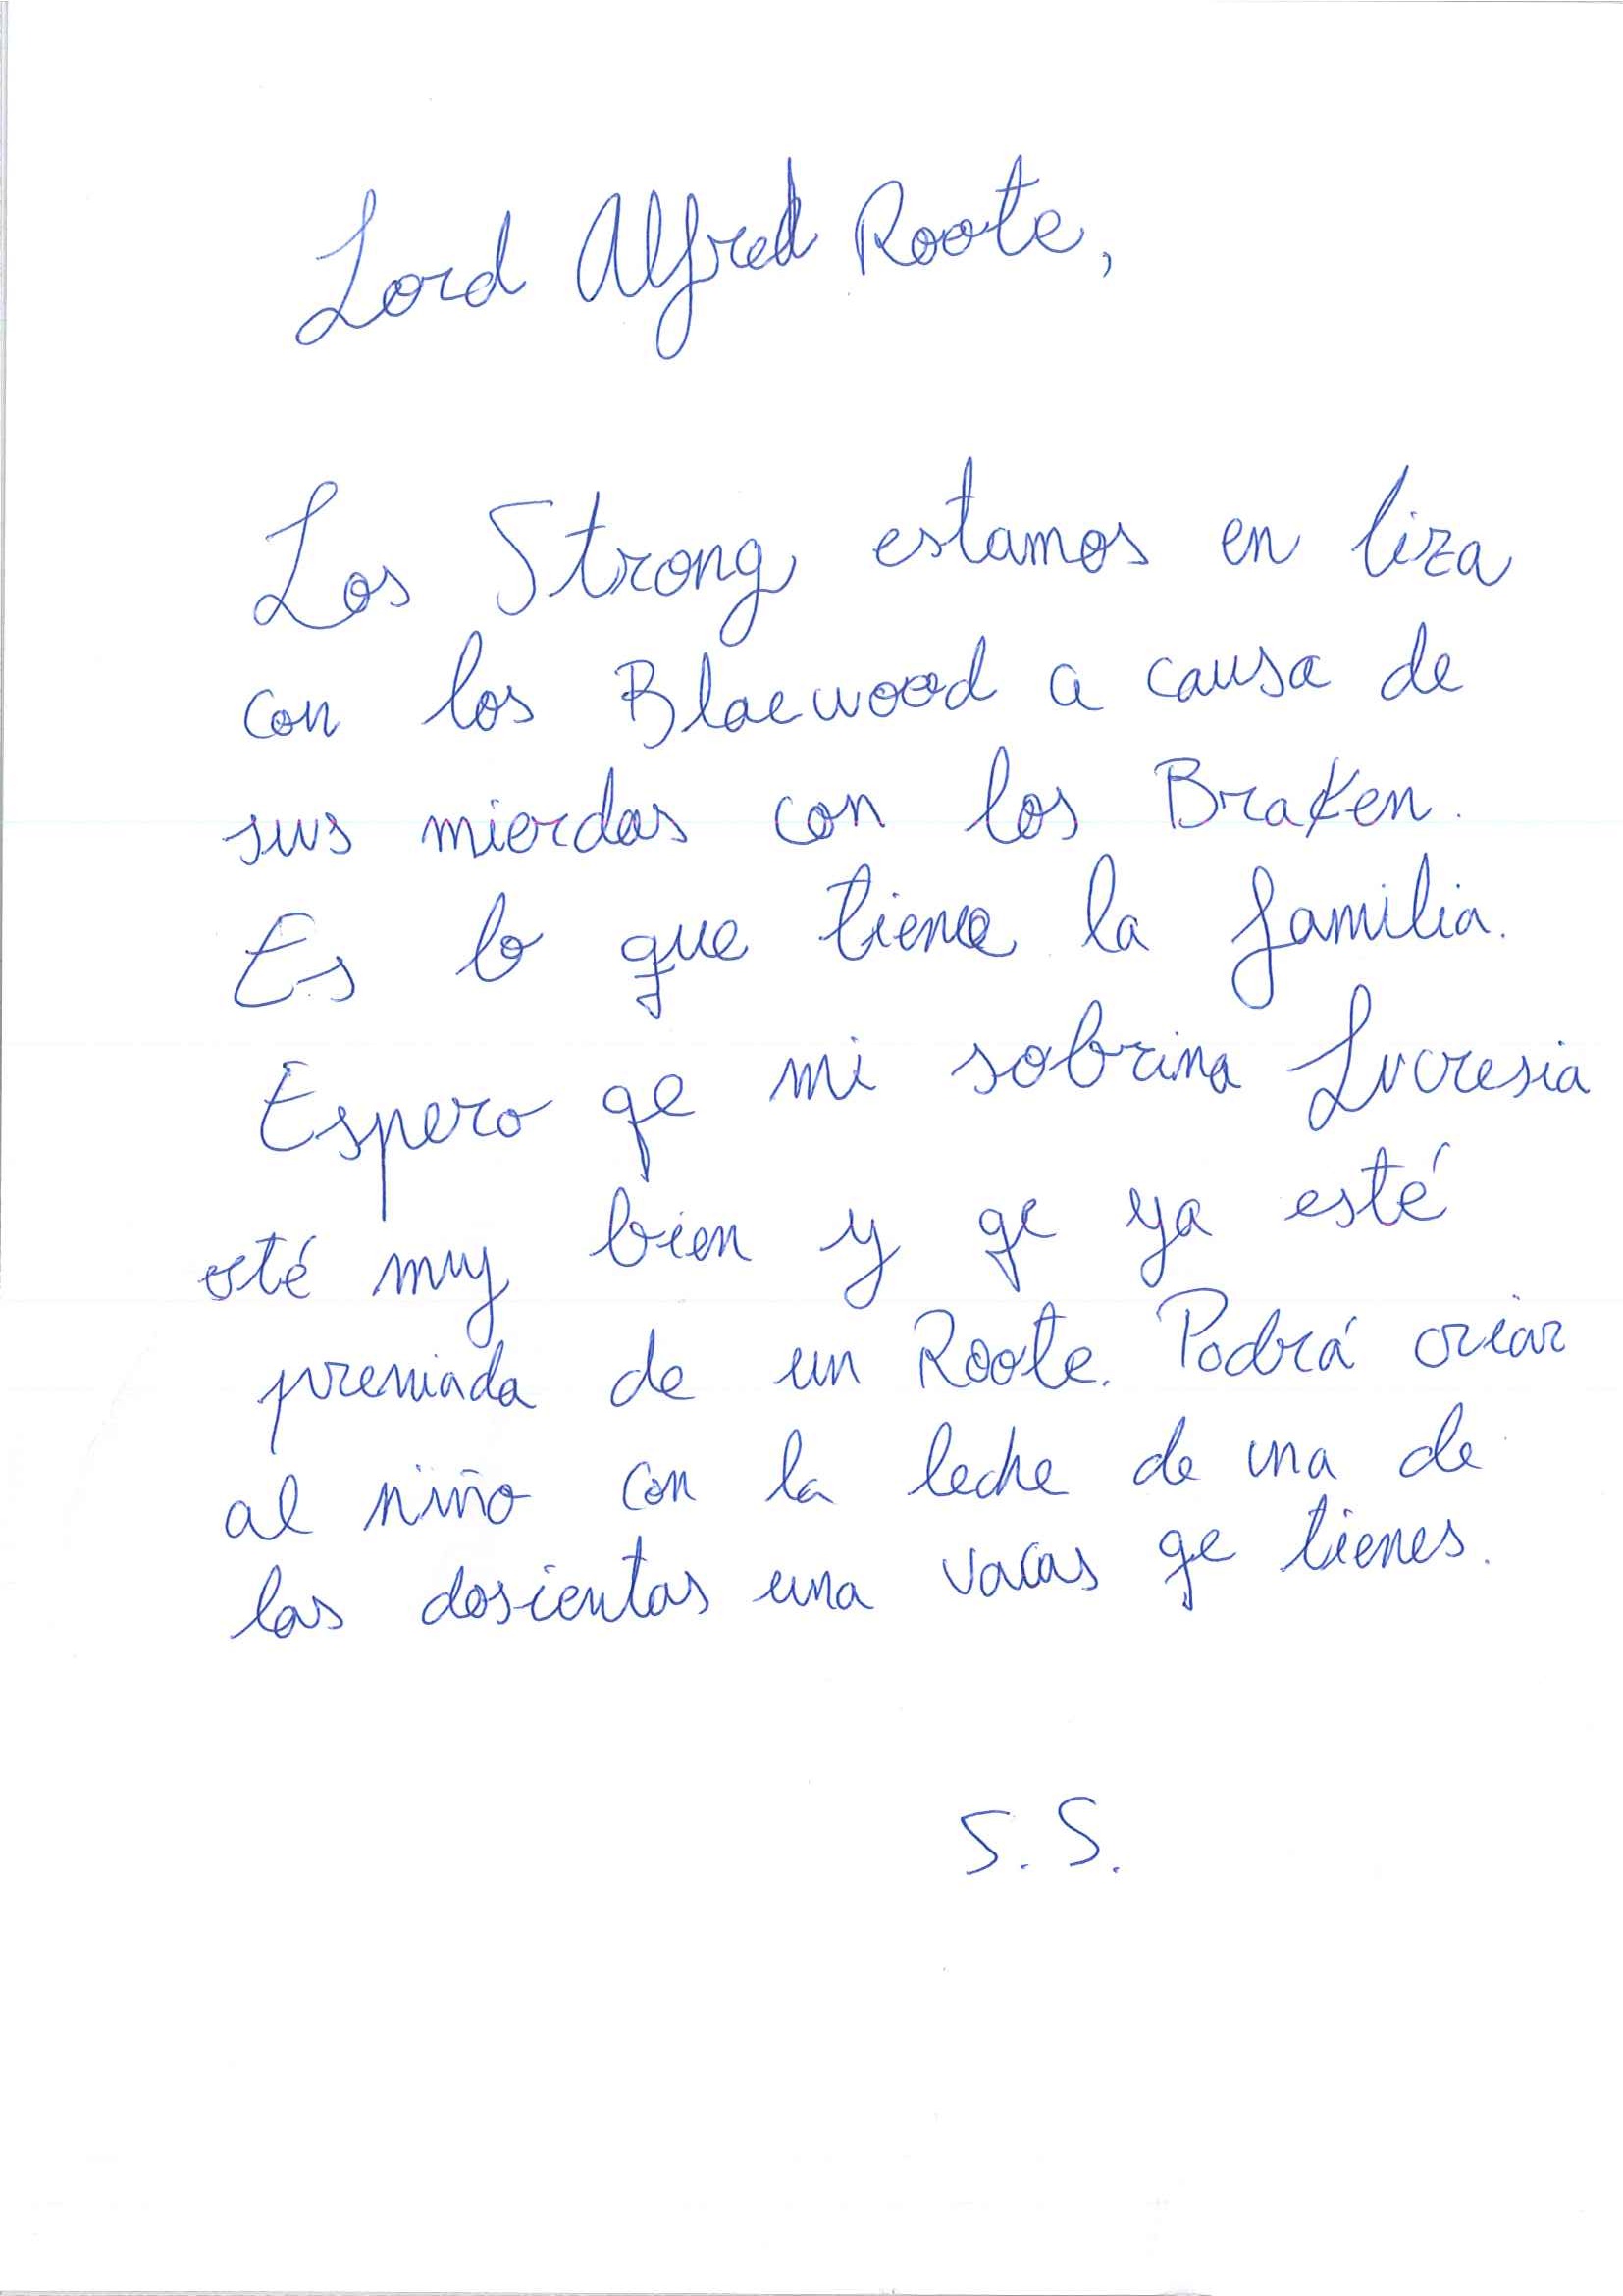 Lord Alfred Roote,
Los Strong estamos en liza
con los Blacwood a causa de
sus mierdas con los Braken.
Es lo que tiene la familia.
Espero qe mi sobrina Lucresia
esté muy bien y qe ya esté
premiada de un Roote. Podrá criar
al niño con la leche de una de
las dosientas una vacas qe tienes.
S. S.